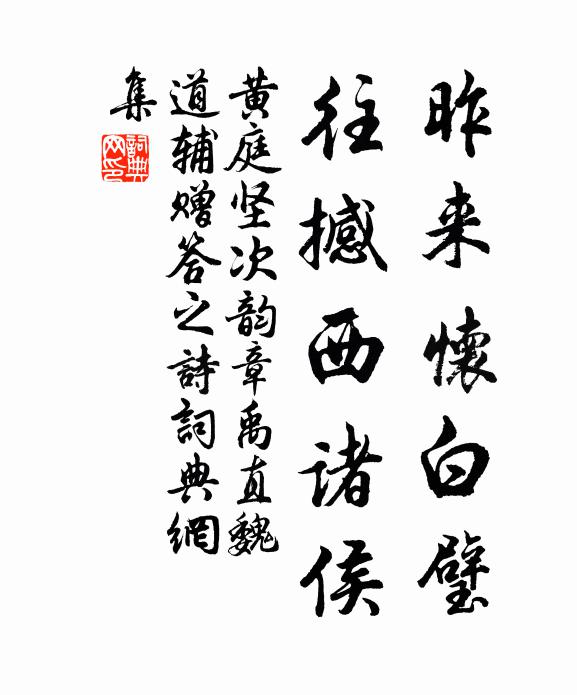 昨来懷白璧
往撼西諸侯
黄庭坚次韵章禹直魏
道辅赠答之詩詞典網
集
詞典网印